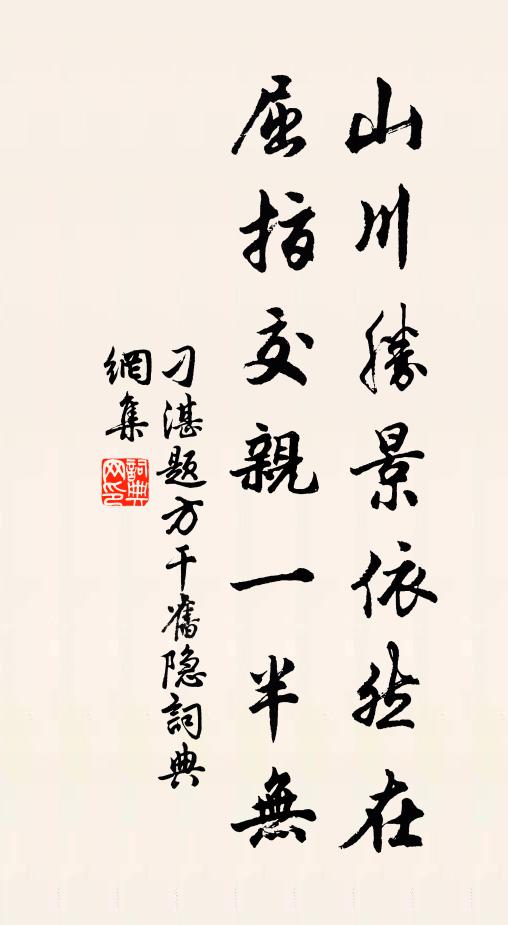 山川勝景依然在
屈指交親一半無
刁湛題方干舊隐詞典
網集
詞典
网印